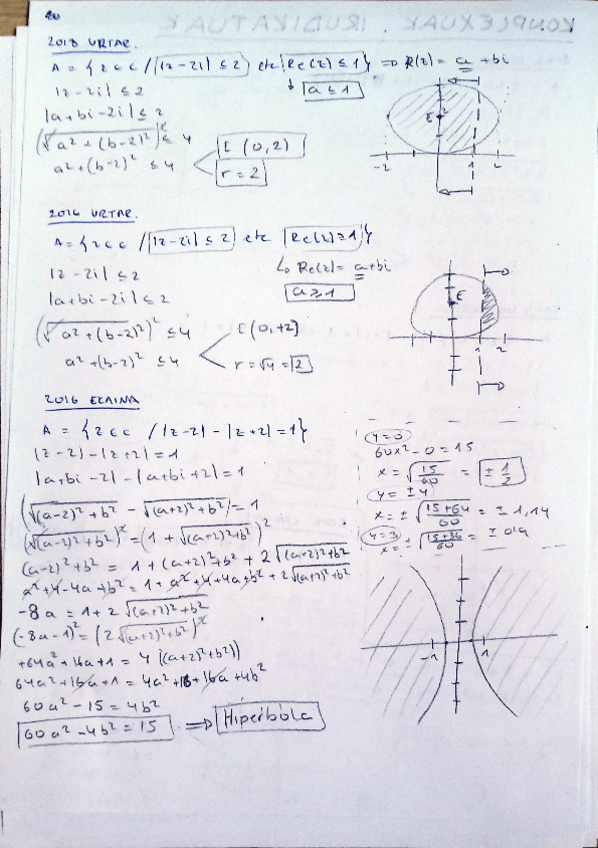 KONPLEXUAK. IRUDIKATUAK
2018 URTAR.
A = { z ∈ C / |z - 2i| ≤ 2 etc Re(z) ≤ 1 } ⇒ R(z) = a + bi
|z - 2i| ≤ 2
↓ a ≤ 1
|a + bi - 2i| ≤ 2
(√(a² + (b-2)²))² ≤ 4
a² + (b-2)² ≤ 4
E (0,2)
r = 2
E 2
-2 1 2
2016 URTAR.
A = { z ∈ C / |z - 2i| ≤ 2 etc Re(z) ≥ 1 }
|z - 2i| ≤ 2
↳ Re(z) = a + bi
|a + bi - 2i| ≤ 2
a ≥ 1
(√(a² + (b-2)²))² ≤ 4
a² + (b-2)² ≤ 4
E (0, +2)
r = √4 = 2
E
1 2
2016 EKAINA
A = { z ∈ C / |z - 2| - |z + 2| = 1 }
|z - 2| - |z + 2| = 1
|a + bi - 2| - |a + bi + 2| = 1
(√((a-2)² + b²) - √((a+2)² + b²)) = 1
(√((a-2)² + b²))² = (1 + √((a+2)² + b²))²
(a-2)² + b² = 1 + (a+2)² + b² + 2√((a+2)² + b²)
a² + 4 - 4a + b² = 1 + a² + 4 + 4a + b² + 2√((a+2)² + b²)
-8a = 1 + 2√((a+2)² + b²)
(-8a - 1)² = (2√((a+2)² + b²))²
+64a² + 16a + 1 = 4((a+2)² + b²)
64a² + 16a + 1 = 4a² + 16 + 16a + 4b²
60a² - 15 = 4b²
60a² - 4b² = 15 ⇒ Hiperbola
y = 0
60x² - 0 = 15
x = √(15/60) = ± 1/2
y = ± 4
x = ± √((15+64)/60) = ± 1,14
y = 3
x = ± √((15+36)/60) = ± 0,9
-1 1